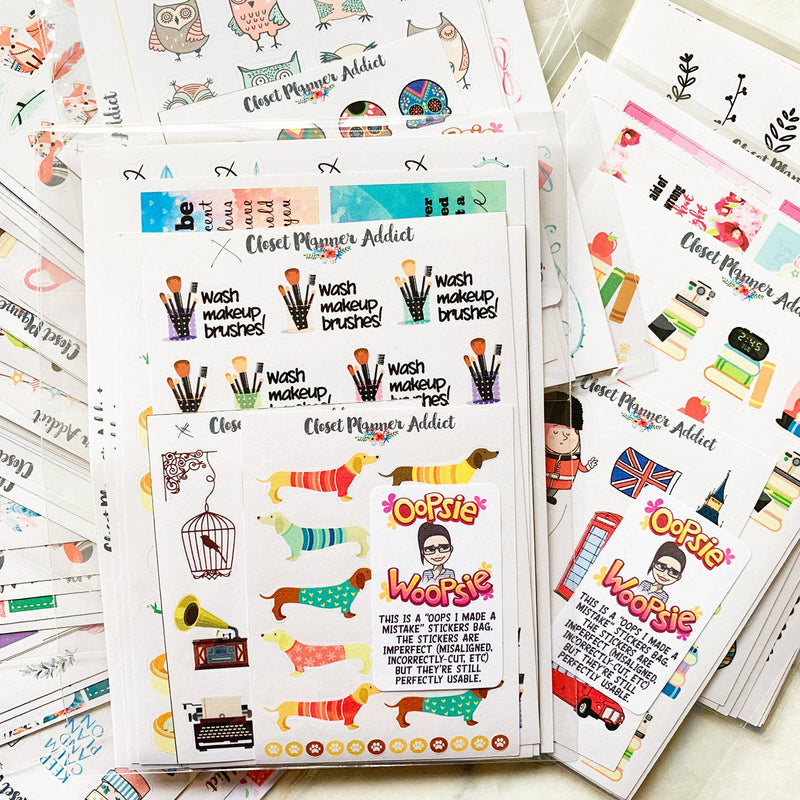 Closet Planner Addict
be
cent
lous
ave
old
you
Closet Planner Addict
Wash
makeup
brushes!
Wash
makeup
brushes!
Wash
makeup
brushes!
Wash
makeup
Wash
makeup
Closet Planner Addict
OOPSIE
WOOPSIE
THIS IS A "OOPS I MADE A
MISTAKE" STICKERS BAG.
THE STICKERS ARE
IMPERFECT (MISALIGNED,
INCORRECTLY-CUT, ETC)
BUT THEY'RE STILL
PERFECTLY USABLE.
Closet Planner Addict
Closet Planner Addict
2:45
TUE
Closet Planner Addict
OOPSIE
WOOPSIE
THIS IS A "OOPS I MADE A
MISTAKE" STICKERS BAG.
THE STICKERS ARE
IMPERFECT (MISALIGNED,
INCORRECTLY-CUT, ETC)
BUT THEY'RE STILL
PERFECTLY USABLE.
Closet Planner
KEEP